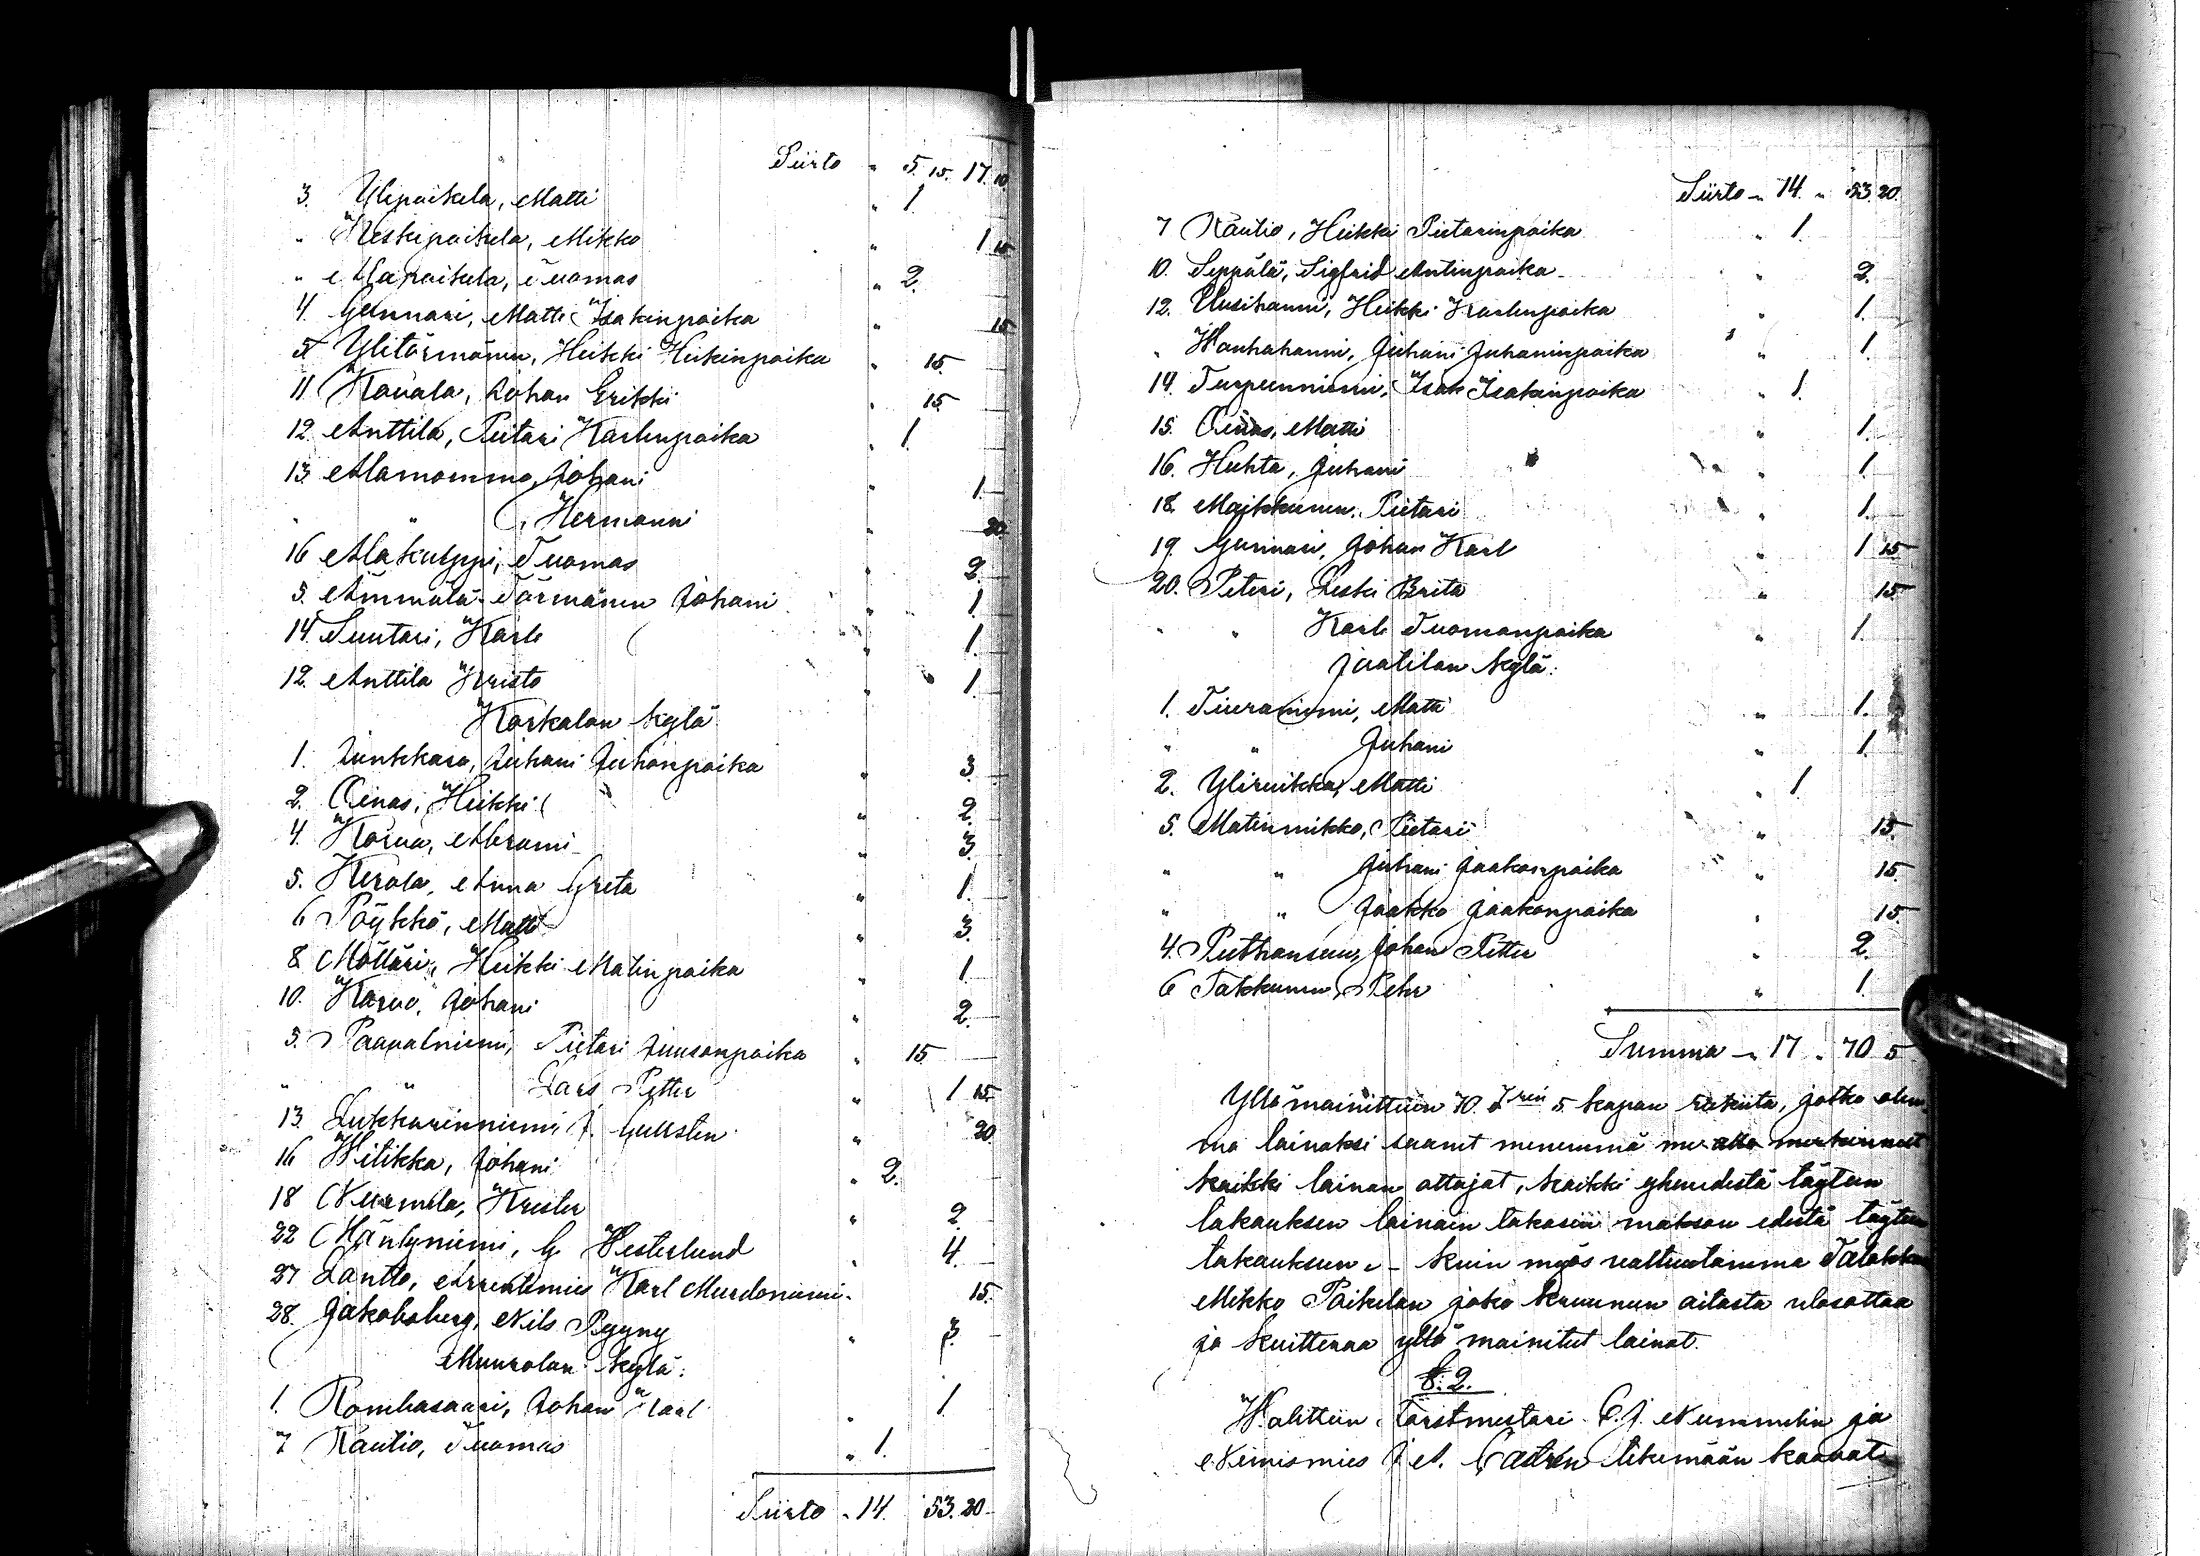 Siirto " 5. 15. 17. 10
3. Ylipaikela, Matti " 1.
" Keskipaikela, Mikko " 1 15
" Alapaikela, Tuomas " 2.
4. Gunnari, Matti Isakinpoika " 15
5. Ylitörmänen, Heikki Heikinpoika " 15
11 Kauala, Johan Erikki " 15
12. Anttila, Pietari Kaarlenpoika " 1.
13. Alamommo, Johani " 1.
" " Hermanni " 20
16 Alakulppi, Tuomas " 2.
5. Ämmälä-Törmänen Johani " 1.
14. Suutari, Kaarle " 1.
12. Anttila Kristo " 1.
Korkalon kylä
1. Junkkara, Juhani Juhonpoika " 3.
2. Oinas, Heikki " 2.
4. Korva, Abrami " 3.
5. Kerola, Anna Greta " 1.
6 Pöykkö, Matti " 3.
8 Möttäri, Heikki Matinpoika " 1.
10. Karvo, Johani " 2.
5. Paavalniemi, Pietari Juusonpoika " 15
" " Lars Petter " 1 15
13. Lukkarinniemi J. Gullsten " 20.
16 Hilikka, Johani " 2.
18 Nurmela, Krister " 2.
22 Mäntyniemi, G. Westerlund " 4.
27 Lantto, Arrentimies Karl Murdoniemi. 15.
28. Jakobsberg, Nils Pyyny " 3.
Muurolan kylä:
1. Romhasaari, Johan Karl " 1.
7 Rautio, Tuomas " 1.
Siirto " 14. 53. 20
Siirto " 14. " 53 20.
7 Rautio, Heikki Pietarinpoika " 1.
10. Seppälä, Sigfrid Antinpoika " 2.
12. Uusihanni, Heikki Kaarlenpoika " 1.
" Wanhahanni, Juhani Juhaninpoika " 1.
14. Turpeenniemi, Isak Isakinpoika " 1.
15. Oinas, Matti " 1.
16. Huhta, Juhani " 1.
18. Maikkunen, Pietari " 1.
19. Gunnari, Johan Karl " 1 15
20. Peteri, Leski Brita " 15
" " Karle Tuomanpoika " 1.
Jaatilan kylä:
1. Tiuraniemi, Matti " 1.
" " Juhani " 1.
2. Yliruikka, Matti " 1.
5. Matinmikko, Pietari " 15.
" " Juhani Jaakonpoika " 15.
" " Jaakko Jaakonpoika " 15
4. Piethansuu, Johan Petter " 2.
6 Takkunen, Pehr " 1.
Summa " 17 " 70 5
Yllämainittuin 70. Trin 5 kapan rukiita, jotka olem
ma lainaksi saanet menemmä me alla
kaikki lainan ottajat, kaikki yhundestä täyteen
takauksen lainain takasin makson edestä täyteen
takauksun, - kuin myös valtuutamma Talokkaan
Mikko Paikelan joka kruunun aitasta ulosottaa
ja kuittenaa yllä mainitut lainat.
§. 2.
Walittiin Forstmestari C. J. Nummelin ja
Nimismies J. A. Castren tekemään kaavat